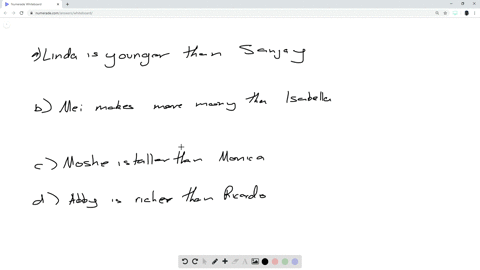 Numerade Whiteboard
numerade.com/answers/whiteboard
a) Linda is younger than Sanjay
b) Mei makes more money than Isabella
c) Moshe is taller than Monica
d) Abby is richer than Ricardo